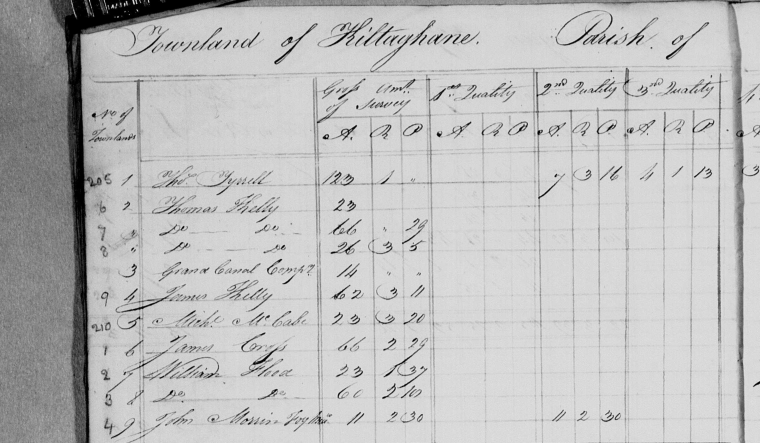 Townland of Kiltaghane. Parish of
Gross Amt. of Survey 1st Quality 2nd Quality 3rd Quality 4
No of Townland A. R P A. R P A. R P. A R P A
205 1 Thos. Tyrrell 123 1 " 7 3 16 4 1 13 3
6 2 Thomas Kelly 23
7 " Do Do 66 " 29
8 " Do Do 26 3 5
3 Grand Canal Compy. 14 " "
9 4 James Kelly 62 3 11
210 5 Michl. McCabe 23 3 20
1 6 James Cross 66 2 29
2 7 William Flood 23 1 37
3 8 Do Do 60 2
4 9 John Morrin 11 2 30 11 2 30